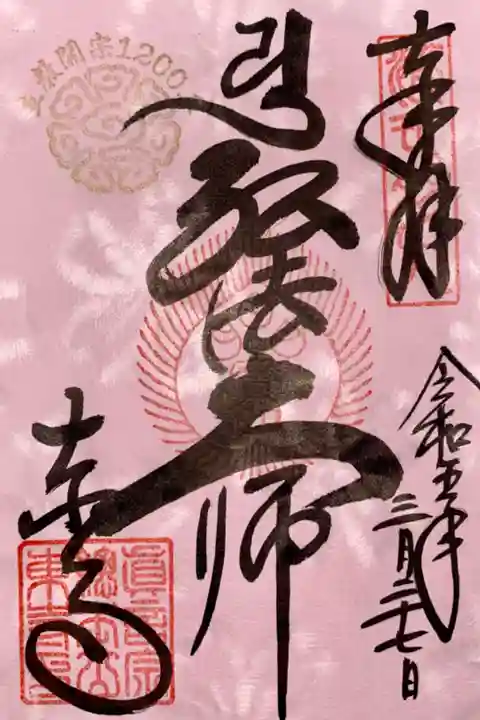 奉拝
令和五年
三月二十七日
弘法大師
東寺
立教開宗1200
真言宗
總本山